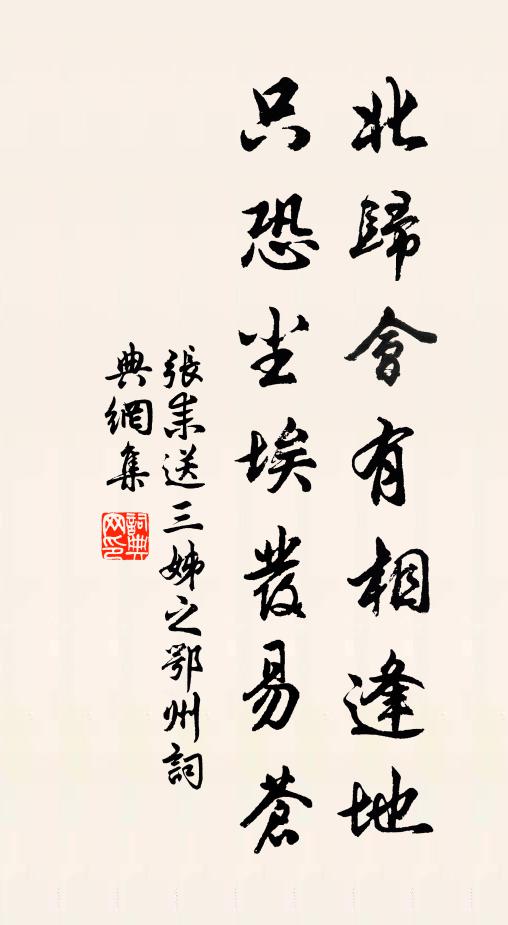 北歸會有相逢地
只恐尘埃發易蒼
張耒送三姊之鄂州詞
典網集
詞典
网印